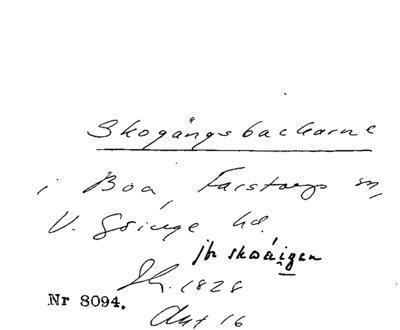 Skogångsbackarne
i Boa, Farstorps sn,
V. Göinge hd.
jfr skoåigen
Sk. 1828
Nr 8094.
Akt 16